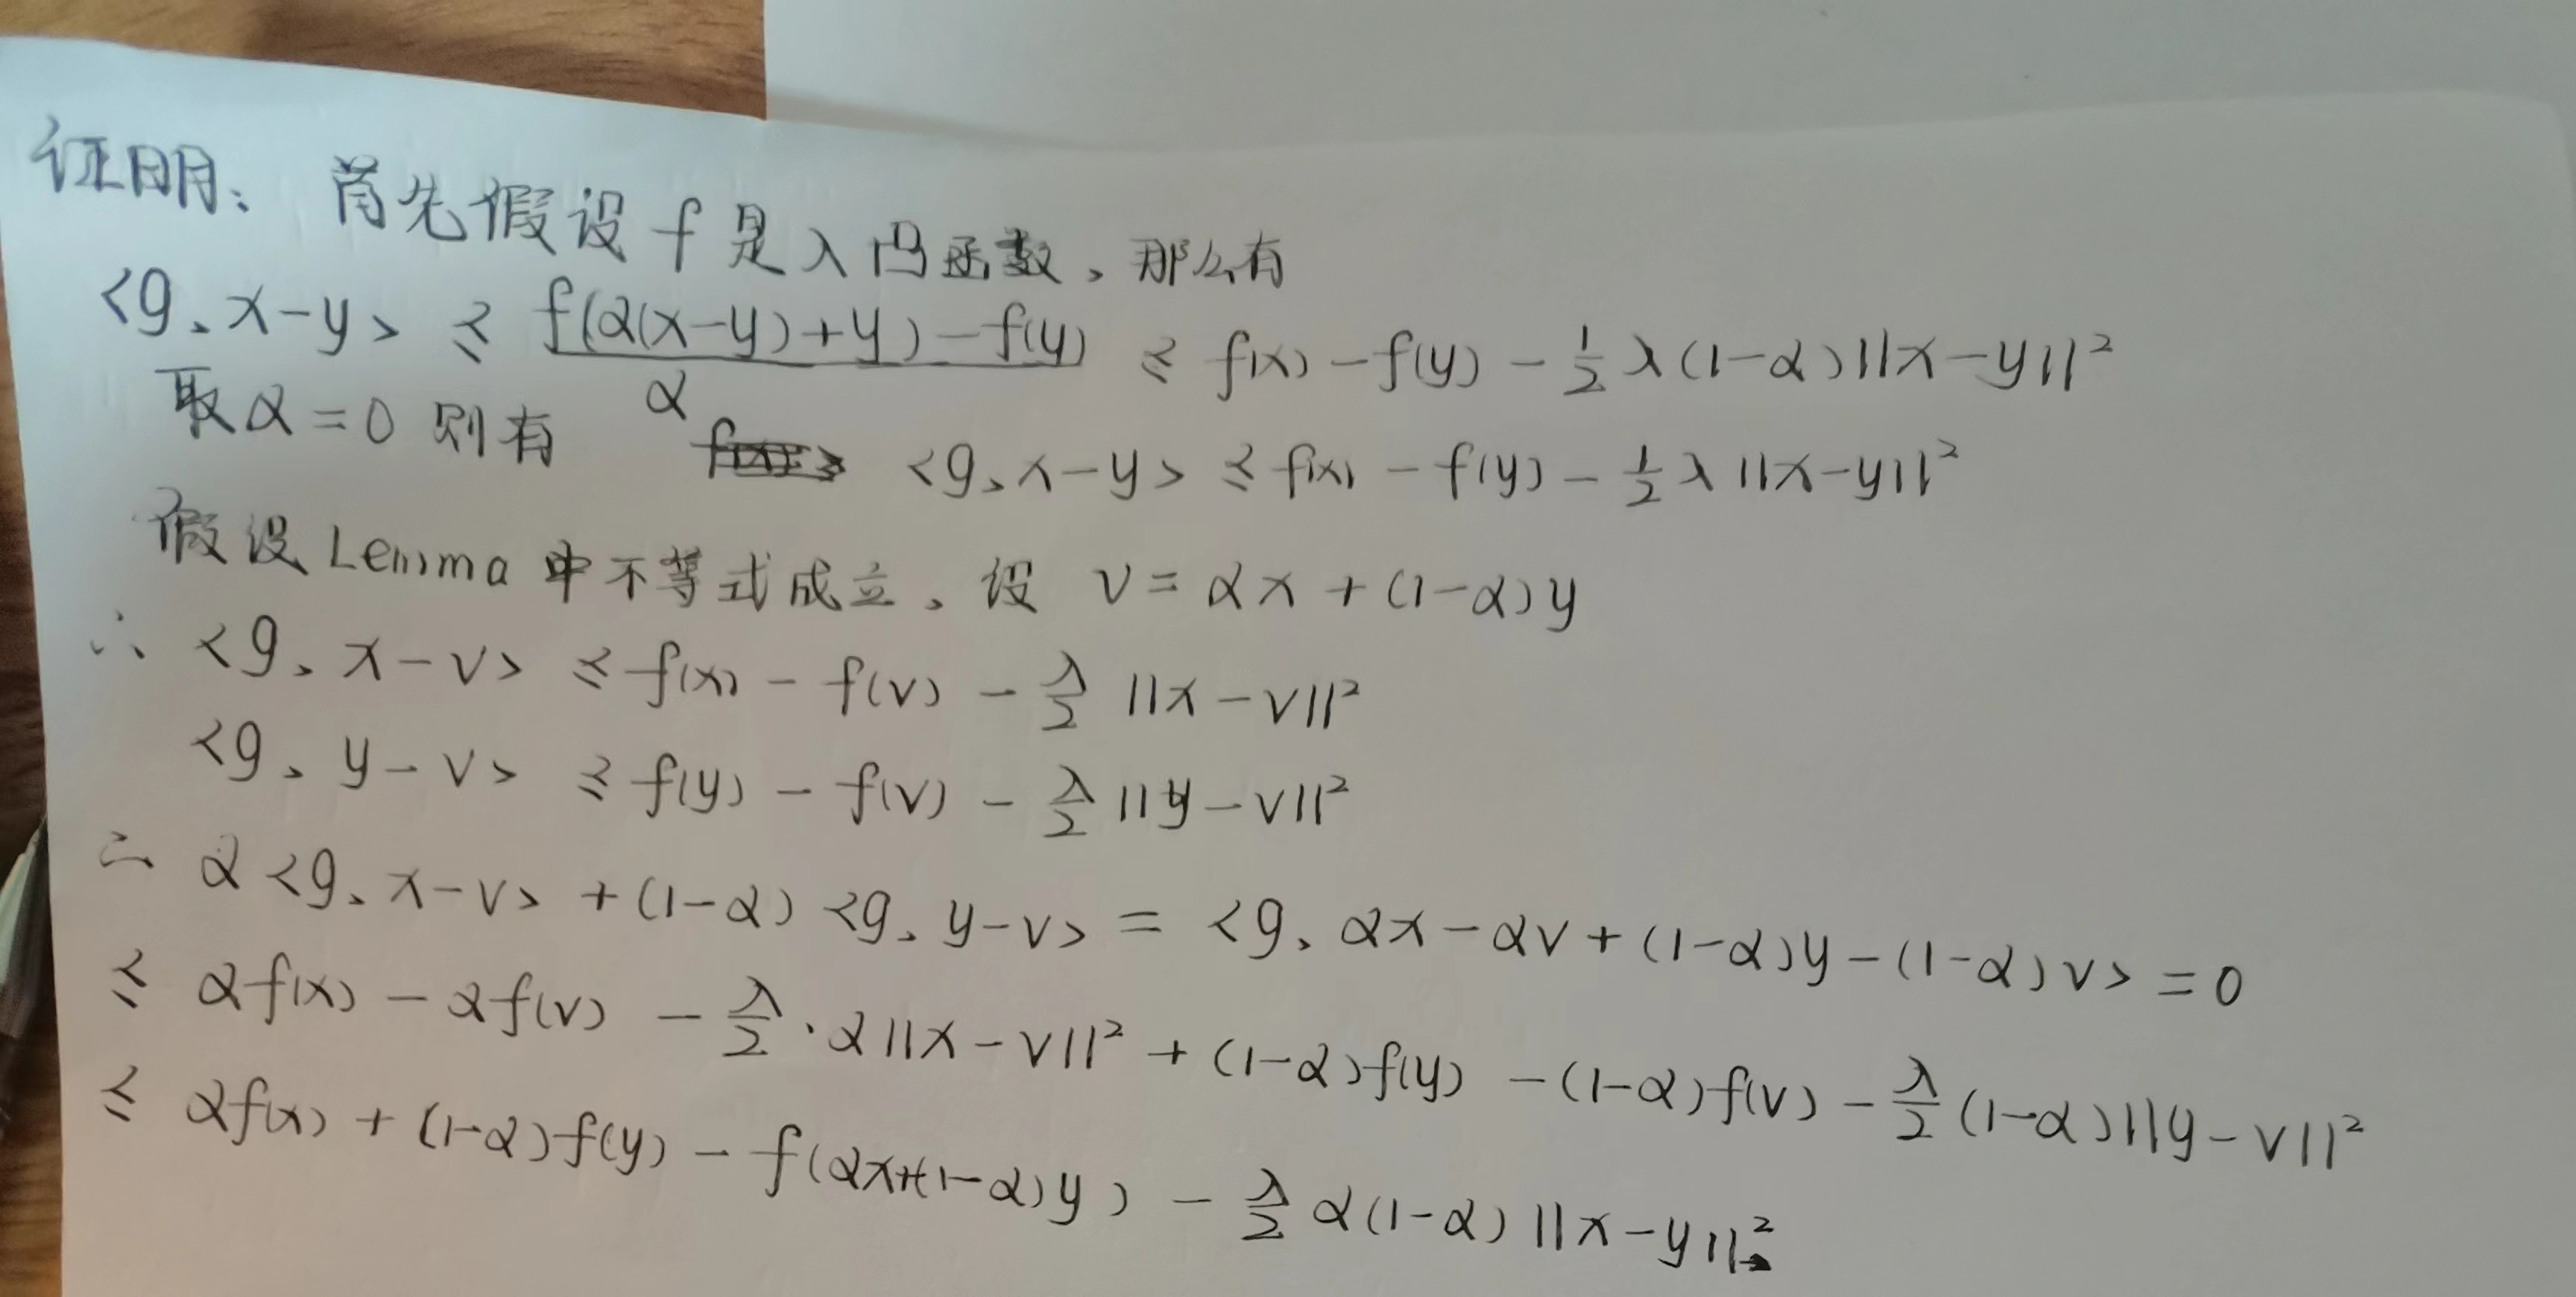 证明: 首先假设f是λ凸函数,那么有
<g、x-y> ≤ f(α(x-y)+y)-f(y) / α ≤ f(x)-f(y)-1/2 λ(1-α)||x-y||²
取α=0 则有 <g、x-y> ≤ f(x) - f(y) - 1/2 λ||x-y||²
假设Lemma中不等式成立、设 v = αx + (1-α)y
∴ <g、x-v> ≤ f(x) - f(v) - λ/2 ||x-v||²
<g、y-v> ≤ f(y) - f(v) - λ/2 ||y-v||²
∴ α<g、x-v> + (1-α)<g、y-v> = <g、αx-αv+(1-α)y-(1-α)v> = 0
≤ αf(x) - αf(v) - λ/2·α||x-v||² + (1-α)f(y) - (1-α)f(v) - λ/2 (1-α)||y-v||²
≤ αf(x) + (1-α)f(y) - f(αx+(1-α)y) - λ/2 α(1-α)||x-y||²